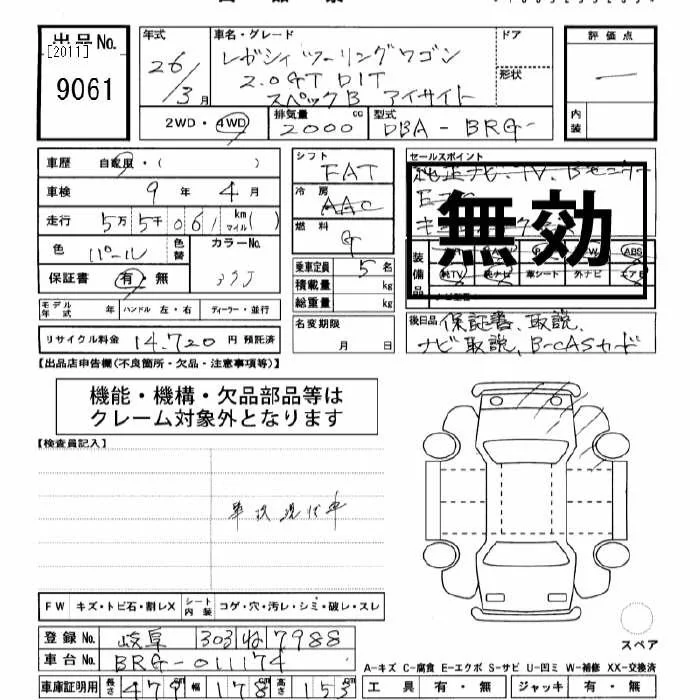 出品No.
[2011]
9061
年式
26/3月
車名・グレード
レガシィツーリングワゴン
2.0GT DIT
スペックB アイサイト
ドア
形状
評価点
内装
2WD・4WD
排気量 2000 cc
型式 DBA-BRG-
車歴 自家用・( )
車検 9年4月
走行 5万5千061 km マイル( )
色 パール 色替
カラーNo. 37J
保証書 有・無
モデル年式 年 ハンドル 左・右 ディーラー・並行
リサイクル料金 14.720 円 預託済
シフト FAT
冷房 AAC
燃料 G
乗車定員 5名
積載量 kg
総重量 kg
名変期限 月 日
セールスポイント
純正ナビ、TV、Bモニター
無効
装備品
ABS
純TV 純ナビ 革シート 外ナビ エアB
ナビ型番
後日品 保証書、取説、
ナビ取説、B-CASカード
【出品店申告欄(不良箇所・欠品・注意事項等)】
機能・機構・欠品部品等は
クレーム対象外となります
【検査員記入】
車次現代車
FW キズ・トビ石・割レX シート内装 コゲ・穴・汚レ・シミ・破レ・スレ
登録No. 岐阜 303 ね 7988
車台No. BRG-011174
車庫証明用 長さ 479 cm 幅 178 cm 高さ 153 cm
スペア
A-キズ C-腐食 E-エクボ S-サビ U-凹ミ W-補修 XX-交換済
工具 有・無 ジャッキ 有・無